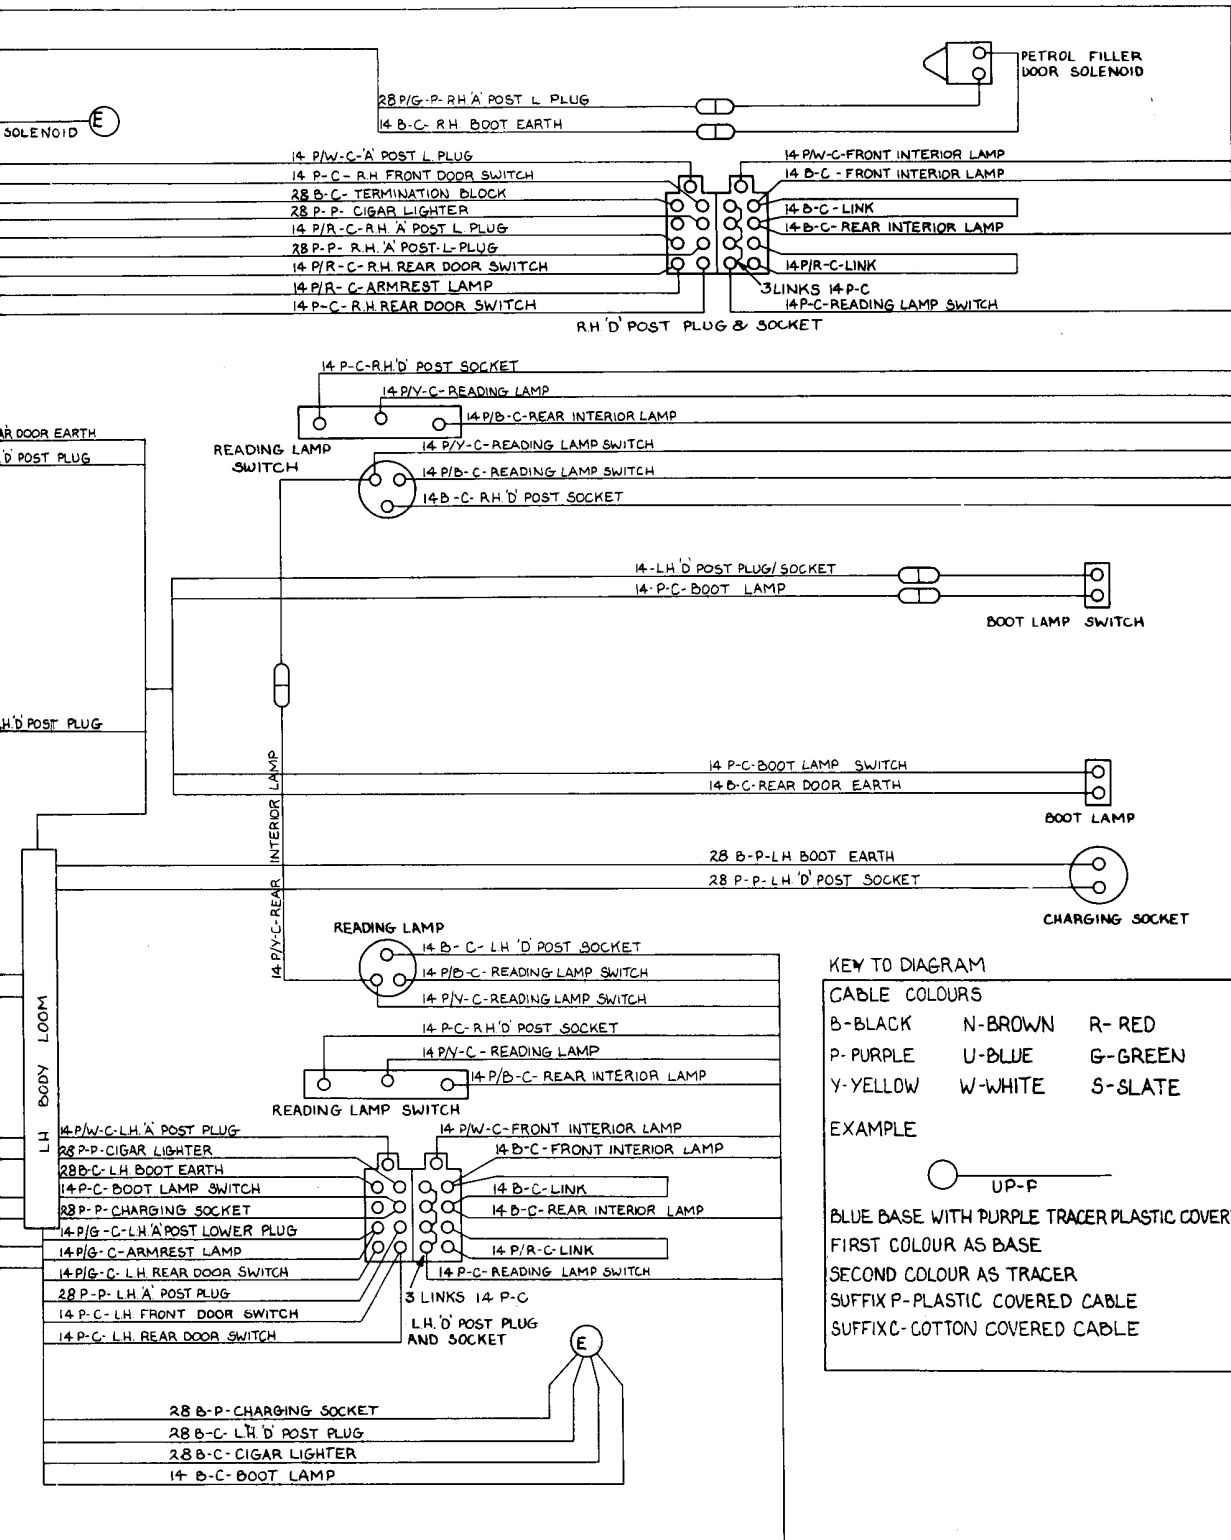 PETROL FILLER
DOOR SOLENOID
28 P/G-P-RH 'A' POST L PLUG
14 B-C-R.H. BOOT EARTH
SOLENOID E
14 P/W-C-'A' POST L. PLUG
14 P-C-R.H FRONT DOOR SWITCH
28 B-C-TERMINATION BLOCK
28 P-P-CIGAR LIGHTER
14 P/R-C-R.H. 'A' POST L. PLUG
28 P-P-R.H. 'A' POST-L-PLUG
14 P/R-C-R.H. REAR DOOR SWITCH
14 P/R-C-ARMREST LAMP
14 P-C-R.H. REAR DOOR SWITCH
14 P/W-C-FRONT INTERIOR LAMP
14 B-C-FRONT INTERIOR LAMP
14 B-C-LINK
14 B-C-REAR INTERIOR LAMP
14 P/R-C-LINK
3 LINKS 14 P-C
14 P-C-READING LAMP SWITCH
R.H 'D' POST PLUG & SOCKET
14 P-C-R.H. 'D' POST SOCKET
14 P/Y-C-READING LAMP
14 P/B-C-REAR INTERIOR LAMP
READING LAMP
SWITCH
14 P/Y-C-READING LAMP SWITCH
14 P/B-C-READING LAMP SWITCH
14 B-C-R.H. 'D' POST SOCKET
AR DOOR EARTH
'D' POST PLUG
14-LH 'D' POST PLUG/SOCKET
14-P-C-BOOT LAMP
BOOT LAMP SWITCH
.H. 'D' POST PLUG
14 P/Y-C-REAR INTERIOR LAMP
14 P-C-BOOT LAMP SWITCH
14 B-C-REAR DOOR EARTH
BOOT LAMP
28 B-P-LH BOOT EARTH
28 P-P-L.H. 'D' POST SOCKET
CHARGING SOCKET
LH BODY LOOM
READING LAMP
14 B-C-L.H 'D' POST SOCKET
14 P/B-C-READING LAMP SWITCH
14 P/Y-C-READING LAMP SWITCH
14 P-C-R.H 'D' POST SOCKET
14 P/Y-C-READING LAMP
14 P/B-C-REAR INTERIOR LAMP
READING LAMP SWITCH
14 P/W-C-L.H. 'A' POST PLUG
28 P-P-CIGAR LIGHTER
28 B-C-L.H. BOOT EARTH
14 P-C-BOOT LAMP SWITCH
28 P-P-CHARGING SOCKET
14 P/G-C-L.H. 'A' POST LOWER PLUG
14 P/G-C-ARMREST LAMP
14 P/G-C-L.H. REAR DOOR SWITCH
28 P-P-L.H. 'A' POST PLUG
14 P-C-L.H. FRONT DOOR SWITCH
14 P-C-L.H. REAR DOOR SWITCH
14 P/W-C-FRONT INTERIOR LAMP
14 B-C-FRONT INTERIOR LAMP
14 B-C-LINK
14 B-C-REAR INTERIOR LAMP
14 P/R-C-LINK
14 P-C-READING LAMP SWITCH
3 LINKS 14 P-C
L.H. 'D' POST PLUG
AND SOCKET
E
28 B-P-CHARGING SOCKET
28 B-C-L.H. 'D' POST PLUG
28 B-C-CIGAR LIGHTER
14 B-C-BOOT LAMP
KEY TO DIAGRAM
CABLE COLOURS
B-BLACK N-BROWN R-RED
P-PURPLE U-BLUE G-GREEN
Y-YELLOW W-WHITE S-SLATE
EXAMPLE
UP-P
BLUE BASE WITH PURPLE TRACER PLASTIC COVER
FIRST COLOUR AS BASE
SECOND COLOUR AS TRACER
SUFFIX P-PLASTIC COVERED CABLE
SUFFIX C-COTTON COVERED CABLE